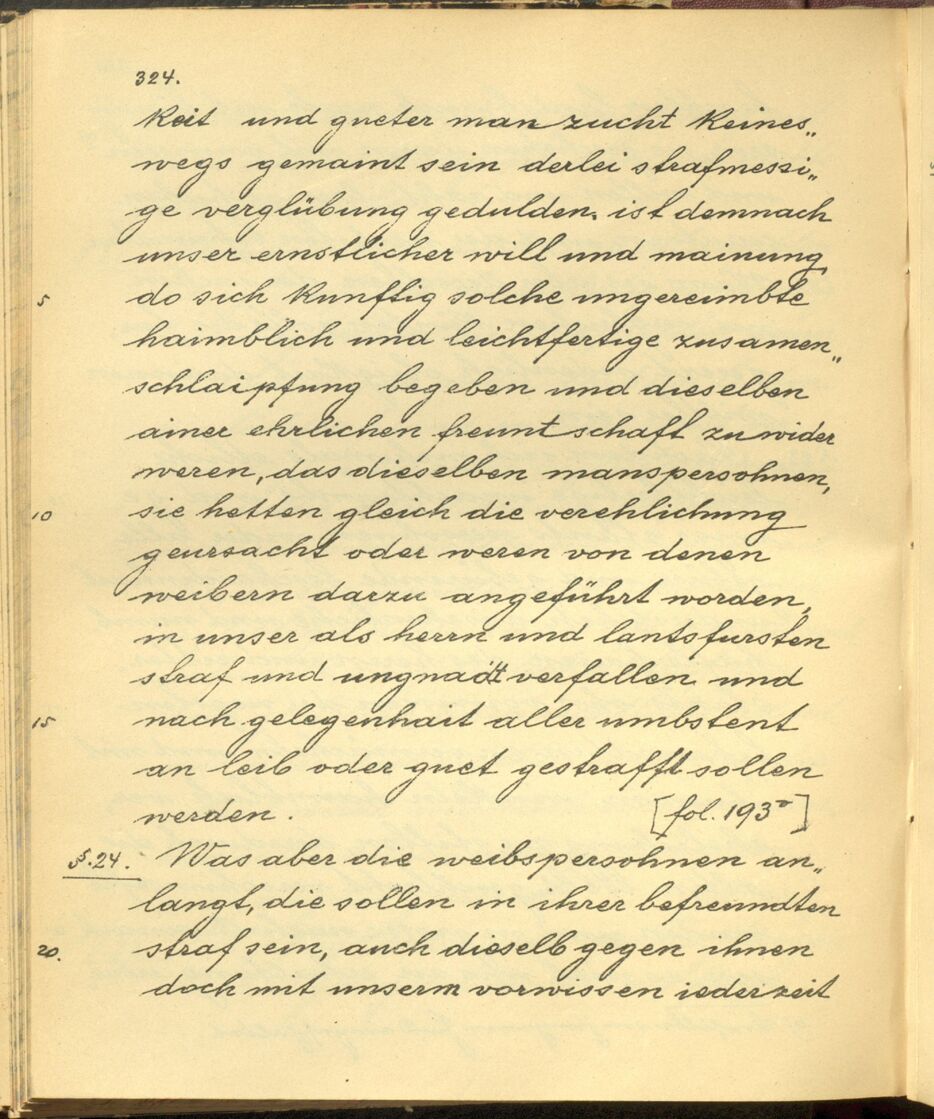 324.
keit und gueter man zucht keines„
wegs gemaint sein derlei strafmessi„
ge verglübung gedulden. ist demnach
unser ernstlicher will und mainung,
5 do sich kunftig solche ungereimbte
haimblich und leichtfertige zusamen„
schlaipfung begeben und dieselben
ainer ehrlichen freuntschaft zuwider
weren, das dieselben manspersohnen,
10 sie hetten gleich die verehlichung
geursacht oder weren von denen
weibern darzu angeführt worden,
in unser als herrn und lantsfursten
straf und verfallen und
15 nach gelegenhait aller umbstent
an leib oder guet gestrafft sollen
werden. [fol. 193v]
§. 24. Was aber die weibspersohnen an„
langt, die sollen in ihrer befreundten
20. straf sein, auch dieselb gegen ihnen
doch mit unserm vorwissen iederzeit